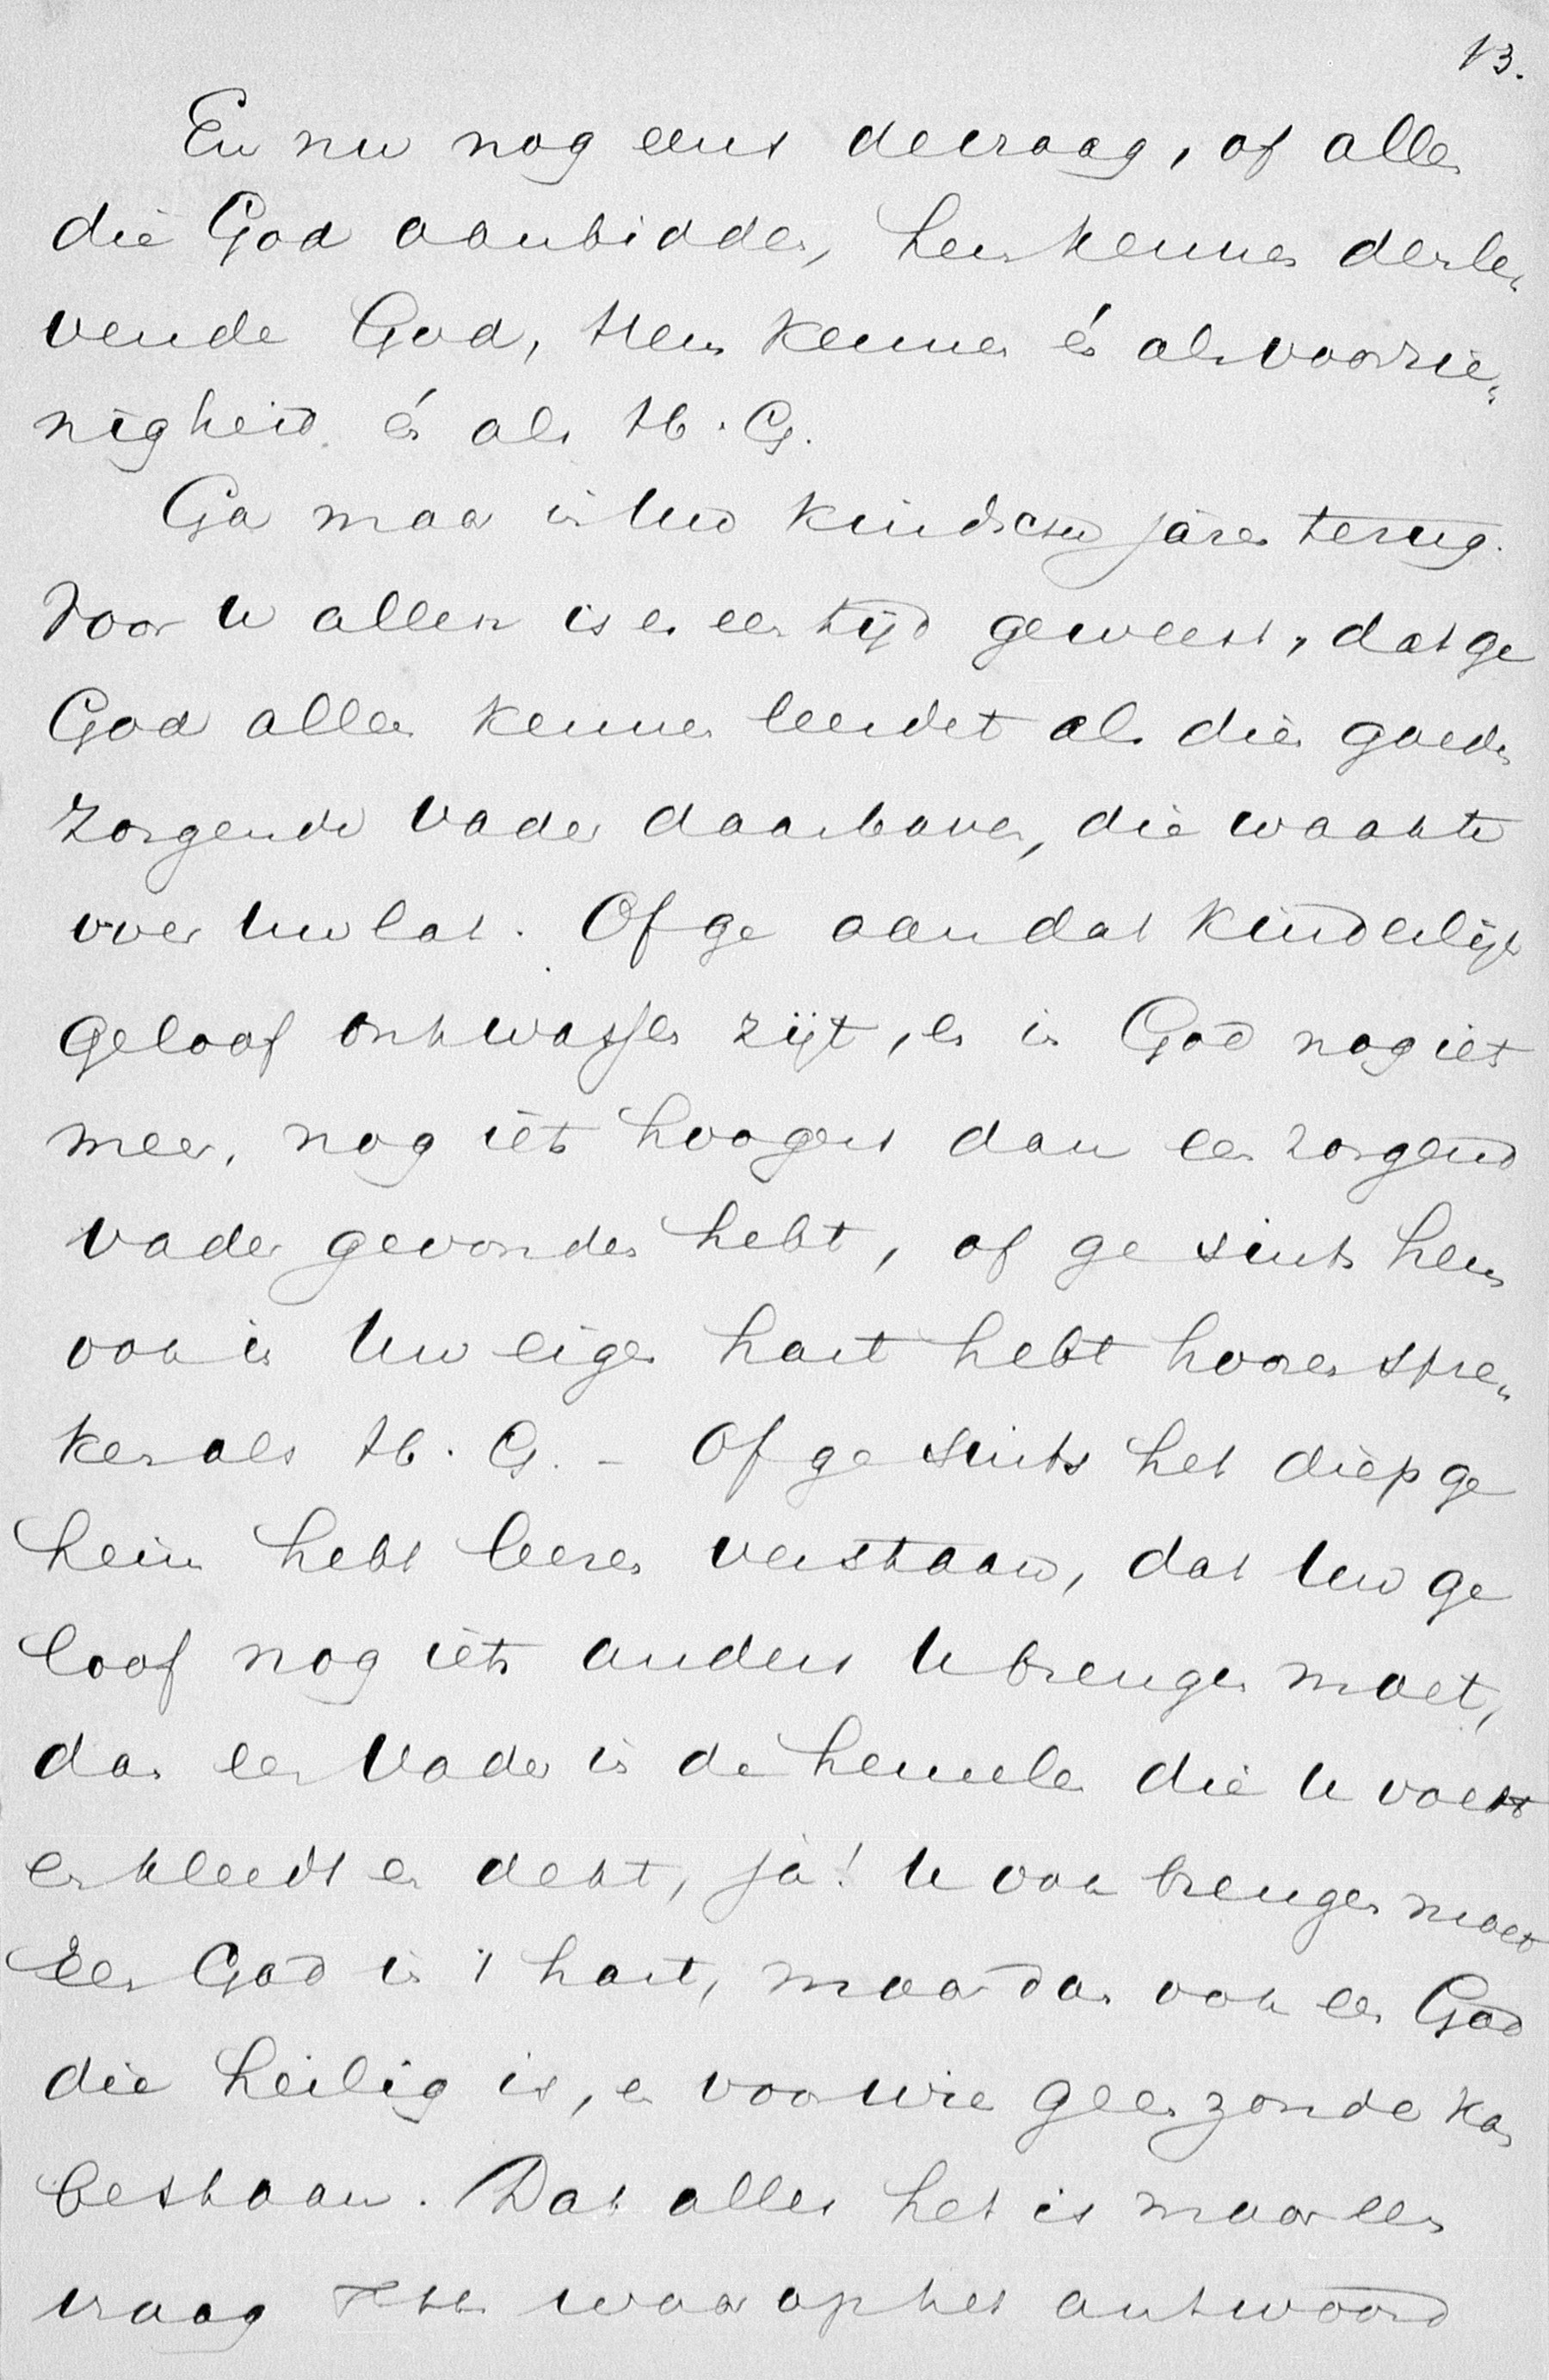 13.
En nu nog eens de vraag, of allen
die God aanbidden, hem kennen den le„
vende God, Hem kennen én als voorzie„
nigheid én als H. G.
Ga maar in Uw kindsche jaren terug.
Voor U allen is er een tijd geweest, dat ge
God alleen kennen leerdet als dien goede
zorgende vader daarboven, die waakte
over Uw lot. Of ge aan dat kinderlijk
geloof ontwassen zijt, en in God nog iets
meer, nog iets hoogers dan een zorgend
vader gevonden hebt, of ge sints hem
ook in Uw eigen hart hebt hooren spre„
ken als H. G. – Of ge sints het diep ge
heim hebt leeren verstaan, dat Uw ge
loof nog iets anders U brengen moet,
dan een Vader in de hemelen die U voedt
en kleedt en dekt, ja! U ook brengen moet
Een God in 't hart, maar dan ook een God
die heilig is, en voor wie geen zonde kan
bestaan. Dat alles het is maar een
vraag waarop het antwoord